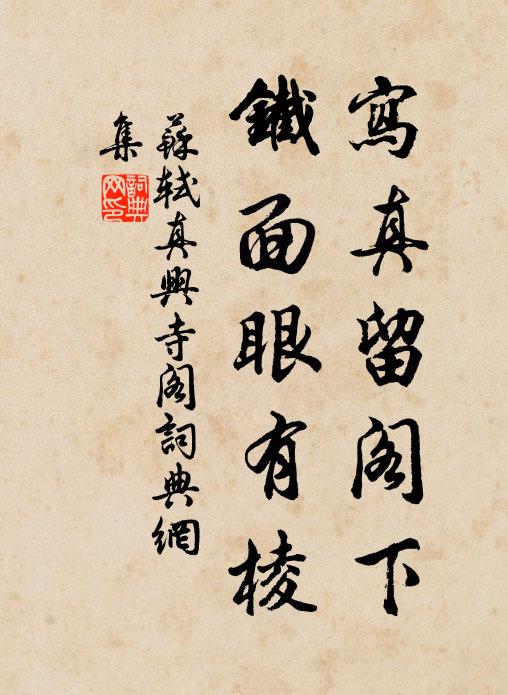 寫真留阁下
鐵面眼有棱
蘇軾真興寺阁詞典網
集
詞典
网印